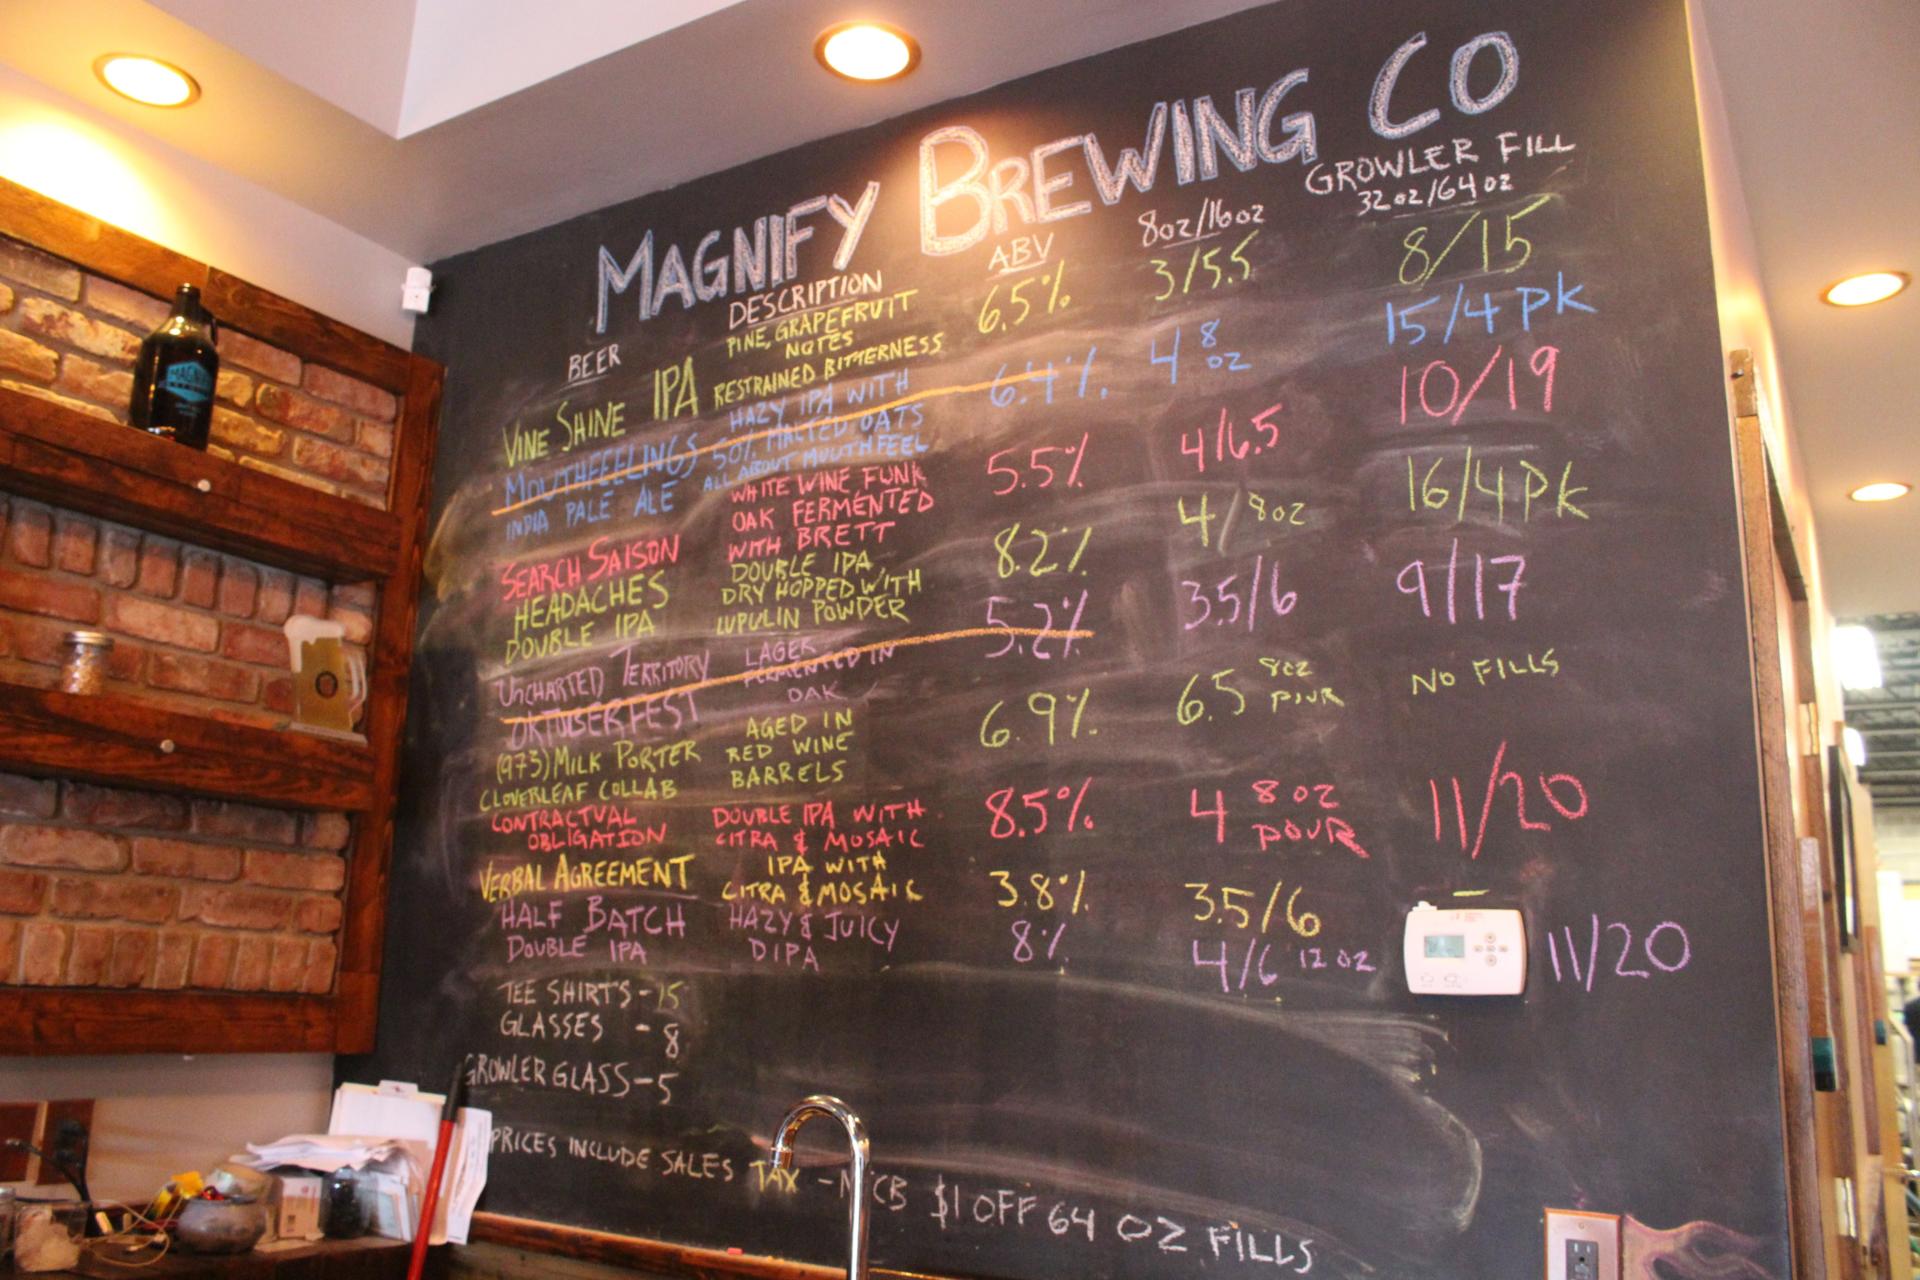 MAGNIFY BREWING CO
BEER DESCRIPTION ABV 8oz/16oz GROWLER FILL
32oz/64oz
VINE SHINE IPA PINE, GRAPEFRUIT 6.5% 3/5.5 8/15
NOTES
RESTRAINED BITTERNESS
MOUTHFEELINGS HAZY IPA WITH 6.4% 4 8 oz 15/4 PK
INDIA PALE ALE 50% MALTED OATS
ALL ABOUT MOUTHFEEL
SEARCH SAISON WHITE WINE FUNK 5.5% 4/6.5 10/19
OAK FERMENTED
WITH BRETT
HEADACHES DOUBLE IPA 8.2% 4/8oz 16/4PK
DOUBLE IPA DRY HOPPED WITH
LUPULIN POWDER
UNCHARTED TERRITORY LAGER 5.2% 3.5/6 9/17
OKTOBERFEST FERMENTED IN
OAK
(973) MILK PORTER AGED IN 6.9% 6.5 8oz POUR NO FILLS
CLOVERLEAF COLLAB RED WINE
BARRELS
CONTRACTUAL DOUBLE IPA WITH 8.5% 4 8 OZ POUR 11/20
OBLIGATION CITRA & MOSAIC
VERBAL AGREEMENT IPA WITH 3.8% 3.5/6 –
CITRA & MOSAIC
HALF BATCH HAZY & JUICY 8% 4/6 12 OZ 11/20
DOUBLE IPA DIPA
TEE SHIRTS - 15
GLASSES - 8
GROWLER GLASS - 5
PRICES INCLUDE SALES TAX - CB $1 OFF 64 OZ FILLS
MAGNIFY